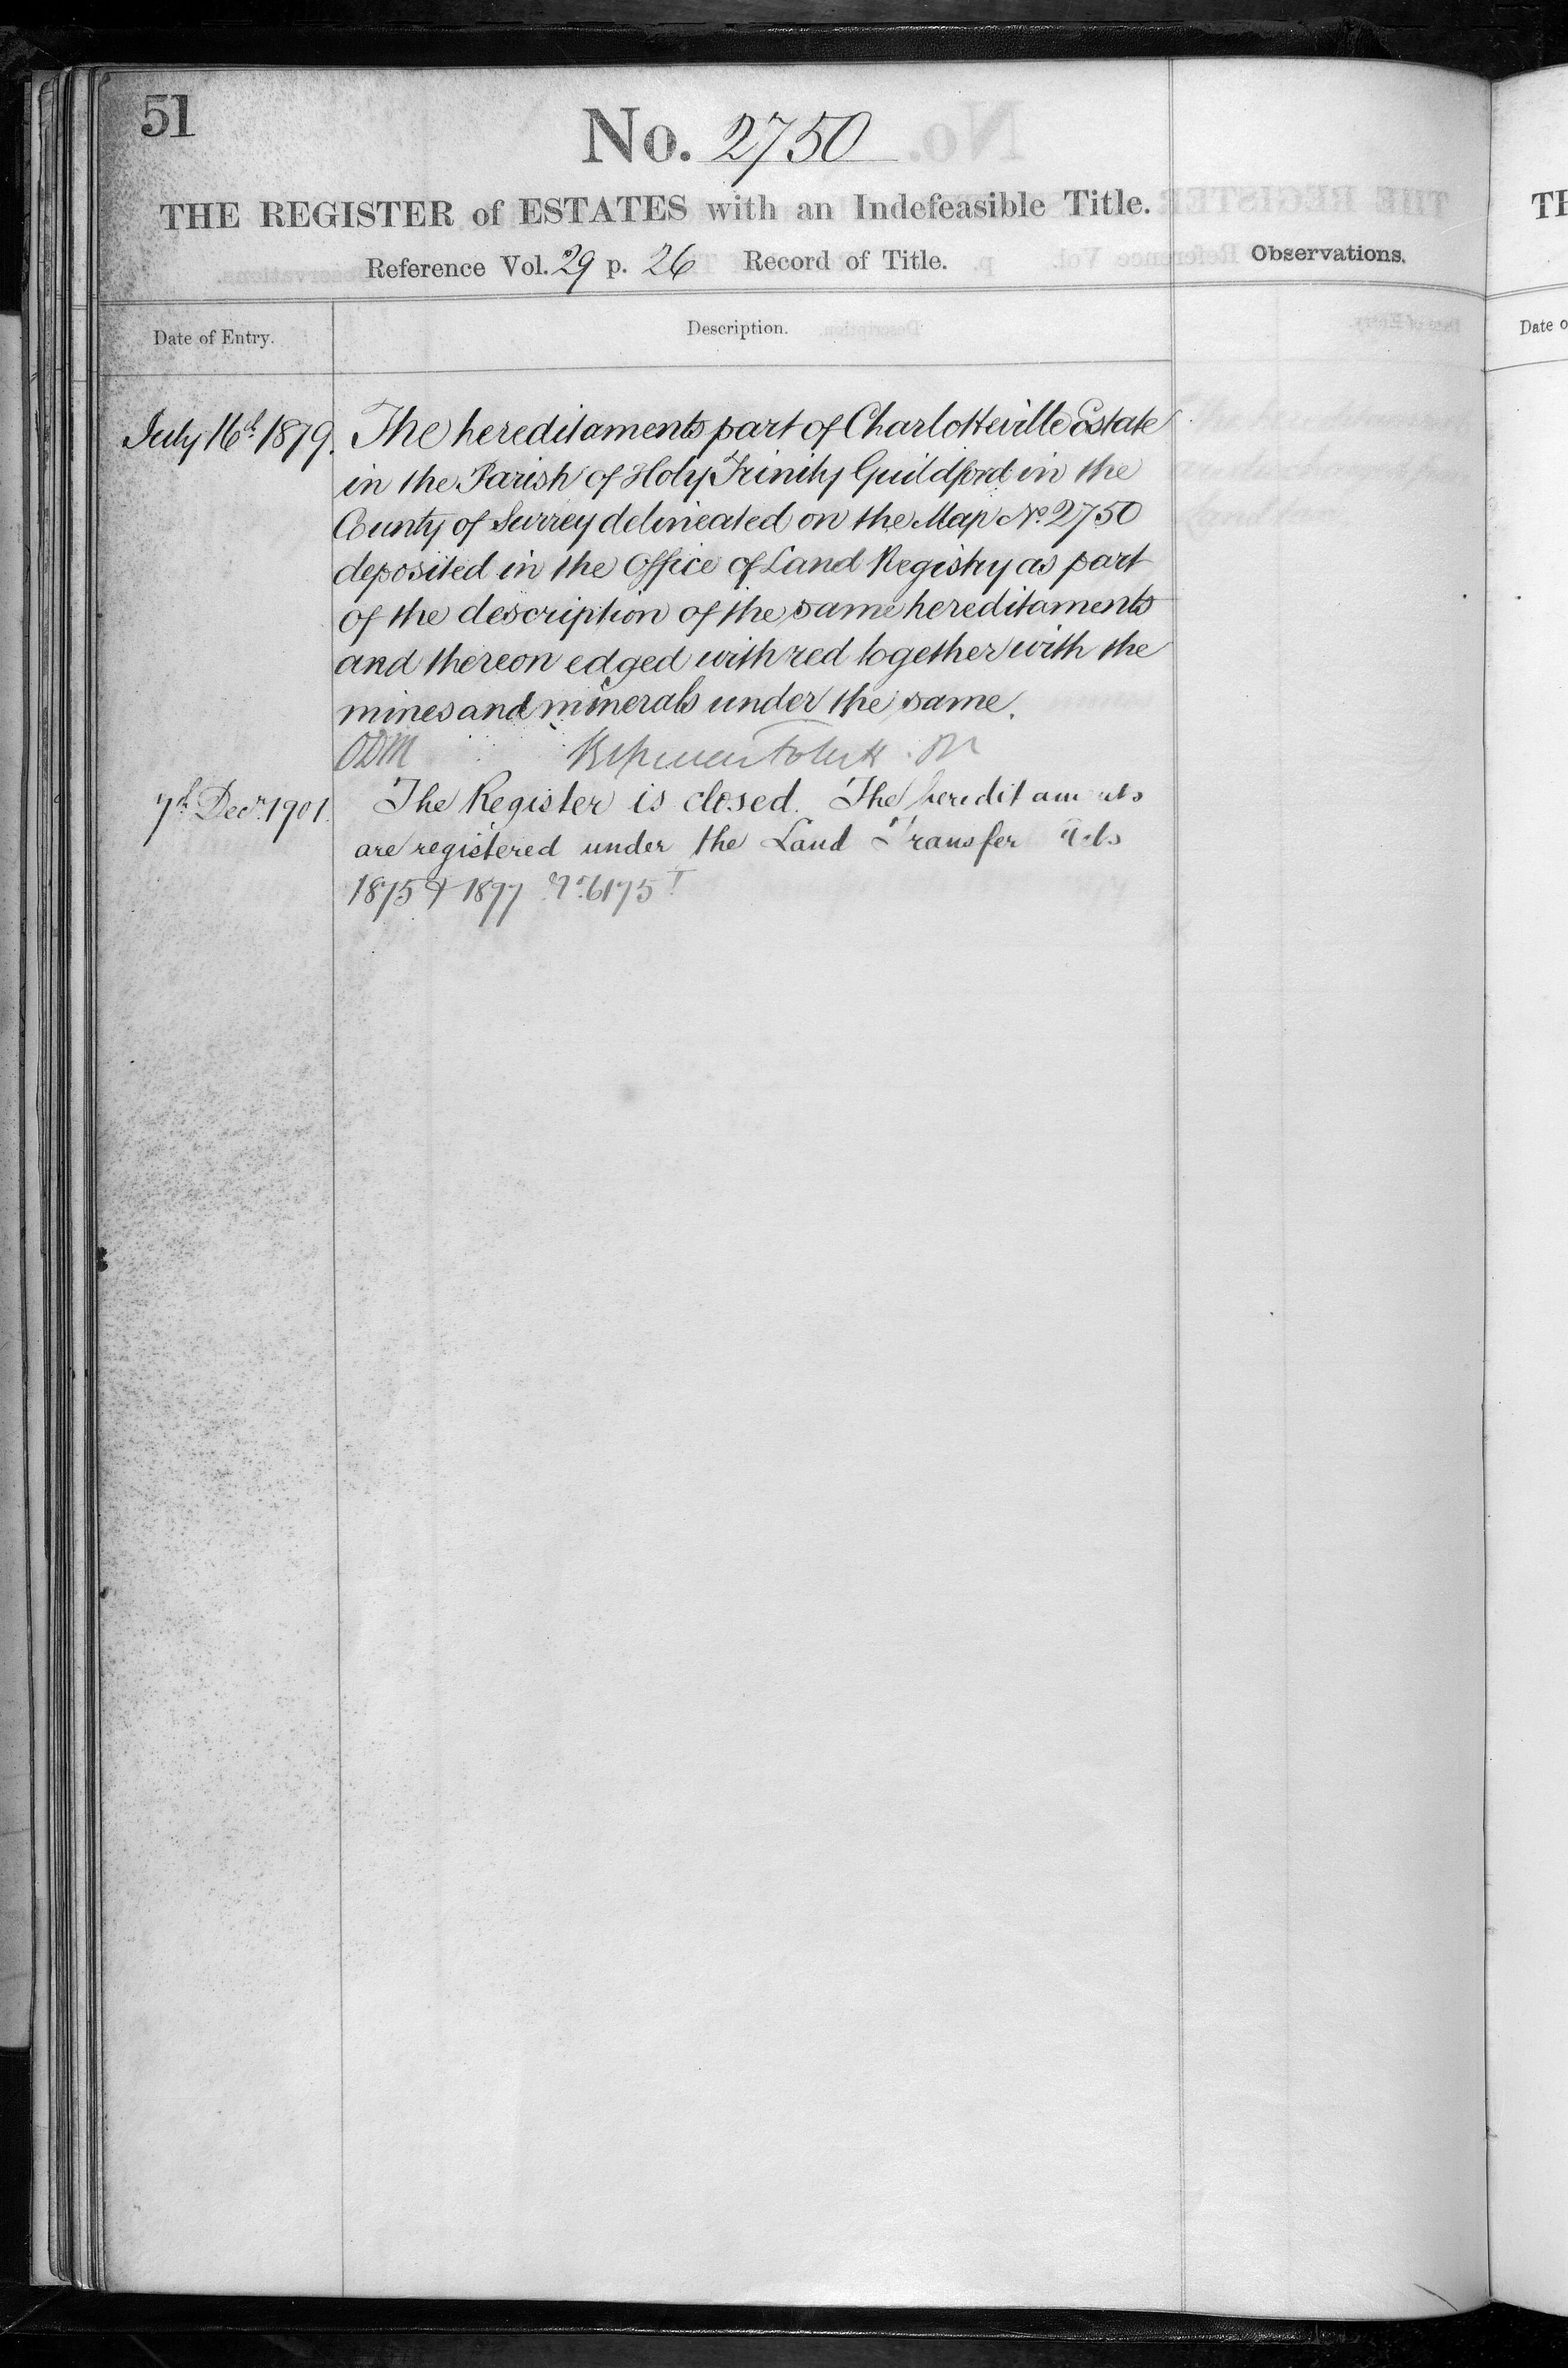 51
No. 2750
THE REGISTER of ESTATES with an Indefeasible Title.
Reference Vol. 29 p. 26 Record of Title.
Observations.
Date of Entry.
Description.
July 16th 1879. The hereditaments part of Charlotteville Estate
in the Parish of Holy Trinity Guildford in the
County of Surrey delineated on the Map No. 2750
deposited in the Office of Land Registry as part
of the description of the same hereditaments
and thereon edged with red together with the
mines and minerals under the same.
7th Decr. 1901. The Register is closed. The hereditaments
are registered under the Land Transfer Acts
1875 & 1897 No. 6175
TH
Date o